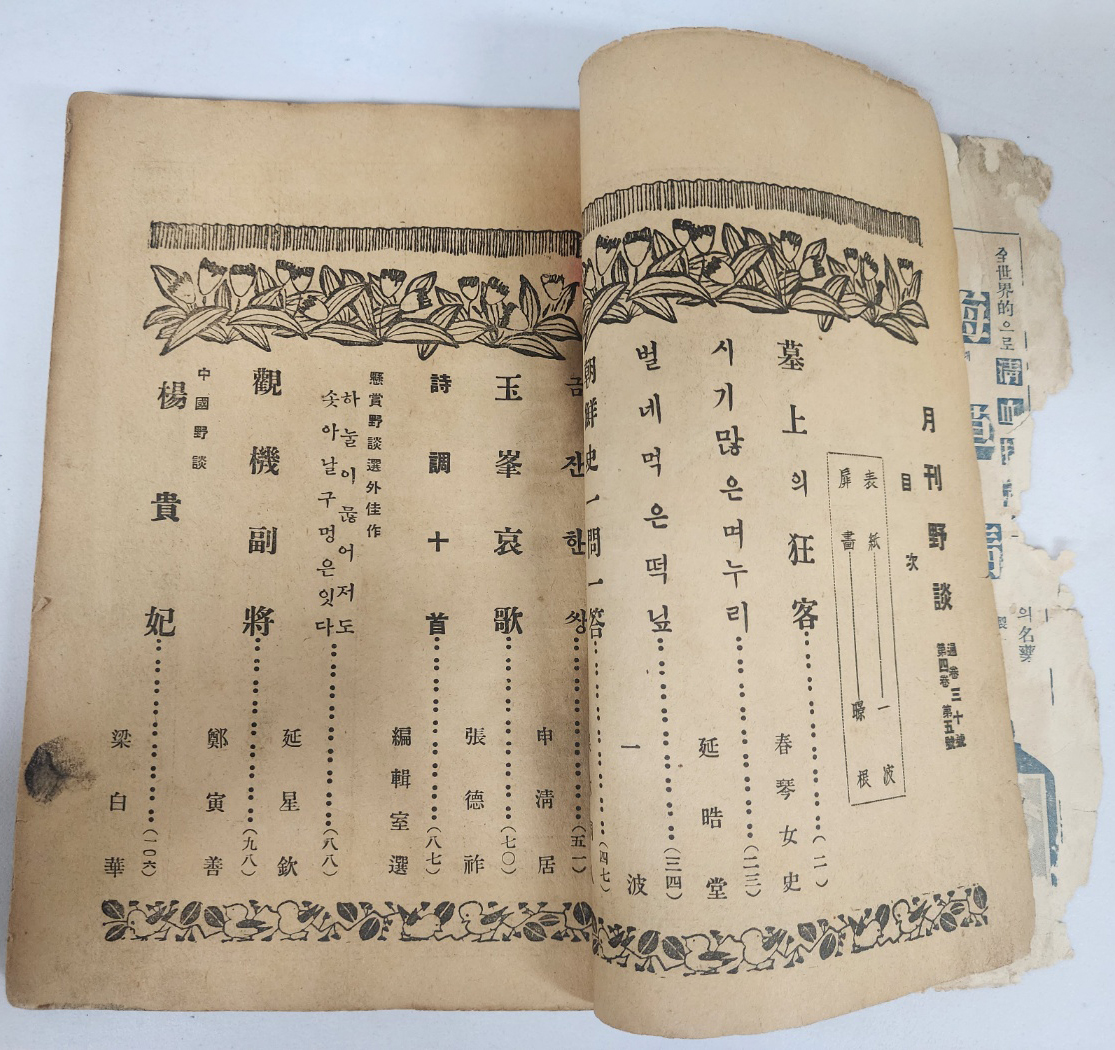 月刊野談
通卷三十號
第四卷 第五號
目次
表紙 一波
扉畵 曝根
墓上의狂客
春琴女史
(二)
시기많은며누리
延晧堂
(二三)
벌네먹은떡닢
一波
(三四)
朝鮮史一問一答
(四七)
금잔한쌍
申淸居
(五一)
玉峯哀歌
張德祚
(七〇)
詩調十首
編輯室選
(八七)
懸賞野談選外佳作
하눌이묺어저도
솟아날구멍은잇다
延星欽
(八八)
觀機副將
鄭寅善
(九八)
中國野談
楊貴妃
梁白華
(一〇六)
全世界的으로
淸血
의名藥